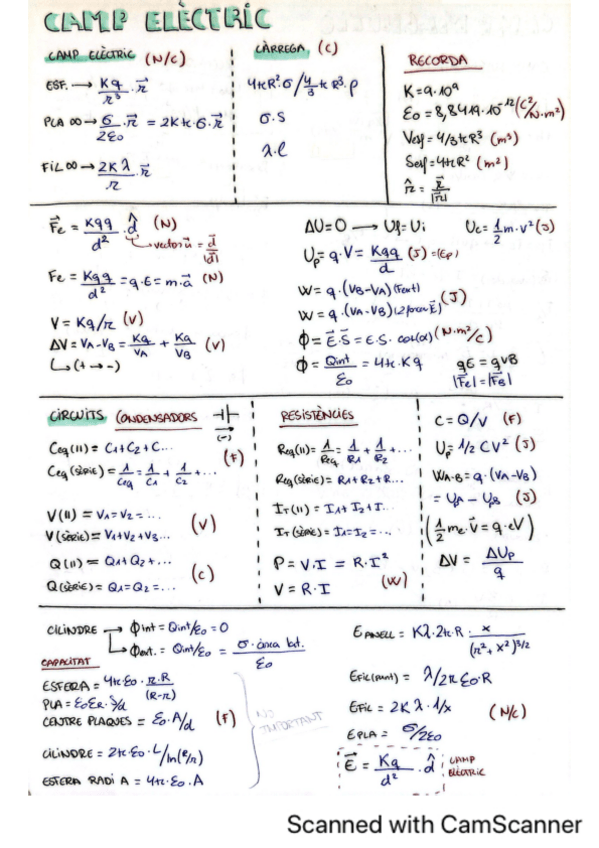 CAMP ELÈCTRIC
CAMP ELÈCTRIC (N/C)
ESF. → Kq/r³ · r⃗
PLA ∞ → σ/2ε₀ · r⃗ = 2Kπ·σ·r⃗
FIL ∞ → 2Kλ/r · r⃗
CÀRREGA (C)
4πR²·σ / 4/3 πR³·ρ
σ·S
λ·l
RECORDA
K=9·10⁹
ε₀ = 8,8419·10⁻¹² (C²/N·m²)
Vesf = 4/3πR³ (m³)
Sesf = 4πR² (m²)
r̂ = r⃗/|r⃗|
F⃗e = Kqq/d² · d̂ (N)
vector u⃗ = d⃗/|d⃗|
Fe = Kqq/d² = q·E = m·a⃗ (N)
V = Kq/r (V)
ΔV = VA-VB = Kq/VA + Kq/VB (V)
(+ → -)
ΔU=0 → Uf = Ui Uc = 1/2 m·v² (J)
Up = q·V = Kqq/d (J) = (Ep)
W = q·(VB-VA) (Fext)
W = q·(VA-VB) (J)
Φ = E⃗·S⃗ = E·S·cos(α) (N·m²/C)
Φ = Qint/ε₀ = 4π·Kq
qE = qvB
|Fe| = |FB|
CIRCUITS CONDENSADORS (-)
Ceq (||) = C1+C2+C...
Ceq (SÈRIE) = 1/Ceq = 1/C1 + 1/C2 + ...
(F)
V(||) = V1=V2=...
V(SÈRIE) = V1+V2+V3...
(V)
Q(||) = Q1+Q2+...
Q(SÈRIE) = Q1=Q2=...
(C)
RESISTÈNCIES
Req(||) = 1/Req = 1/R1 + 1/R2 +...
Req (SÈRIE) = R1+R2+R...
IT (||) = I1+I2+I...
IT (SÈRIE) = I1=I2=...
P = V·I = R·I²
V = R·I
(W)
C = Q/V (F)
Up = 1/2 CV² (J)
WA-B = q·(VA-VB)
= UA - UB (J)
(1/2 me·V⃗ = q·eV)
ΔV = ΔUp/q
CILINDRE → Φint = Qint/ε₀ = 0
Φext. = Qint/ε₀ = σ·àrea lat./ε₀
CAPACITAT
ESFERA = 4π·ε₀ · r·R/(R-r)
PLA = ε₀εR·S/d
CENTRE PLAQUES = ε₀·A/d (F)
CILINDRE = 2π·ε₀·L/ln(R/r)
ESFERA RADI A = 4π·ε₀·A
NO IMPORTANT
EANELL = Kλ·2π·R · x/(r²+x²)^3/2
EFIL(punt) = λ/2πε₀·R
EFIL = 2Kλ·1/x
(N/C)
EPLA = σ/2ε₀
E⃗ = Kq/d² · d̂
CAMP ELÈCTRIC
Scanned with CamScanner